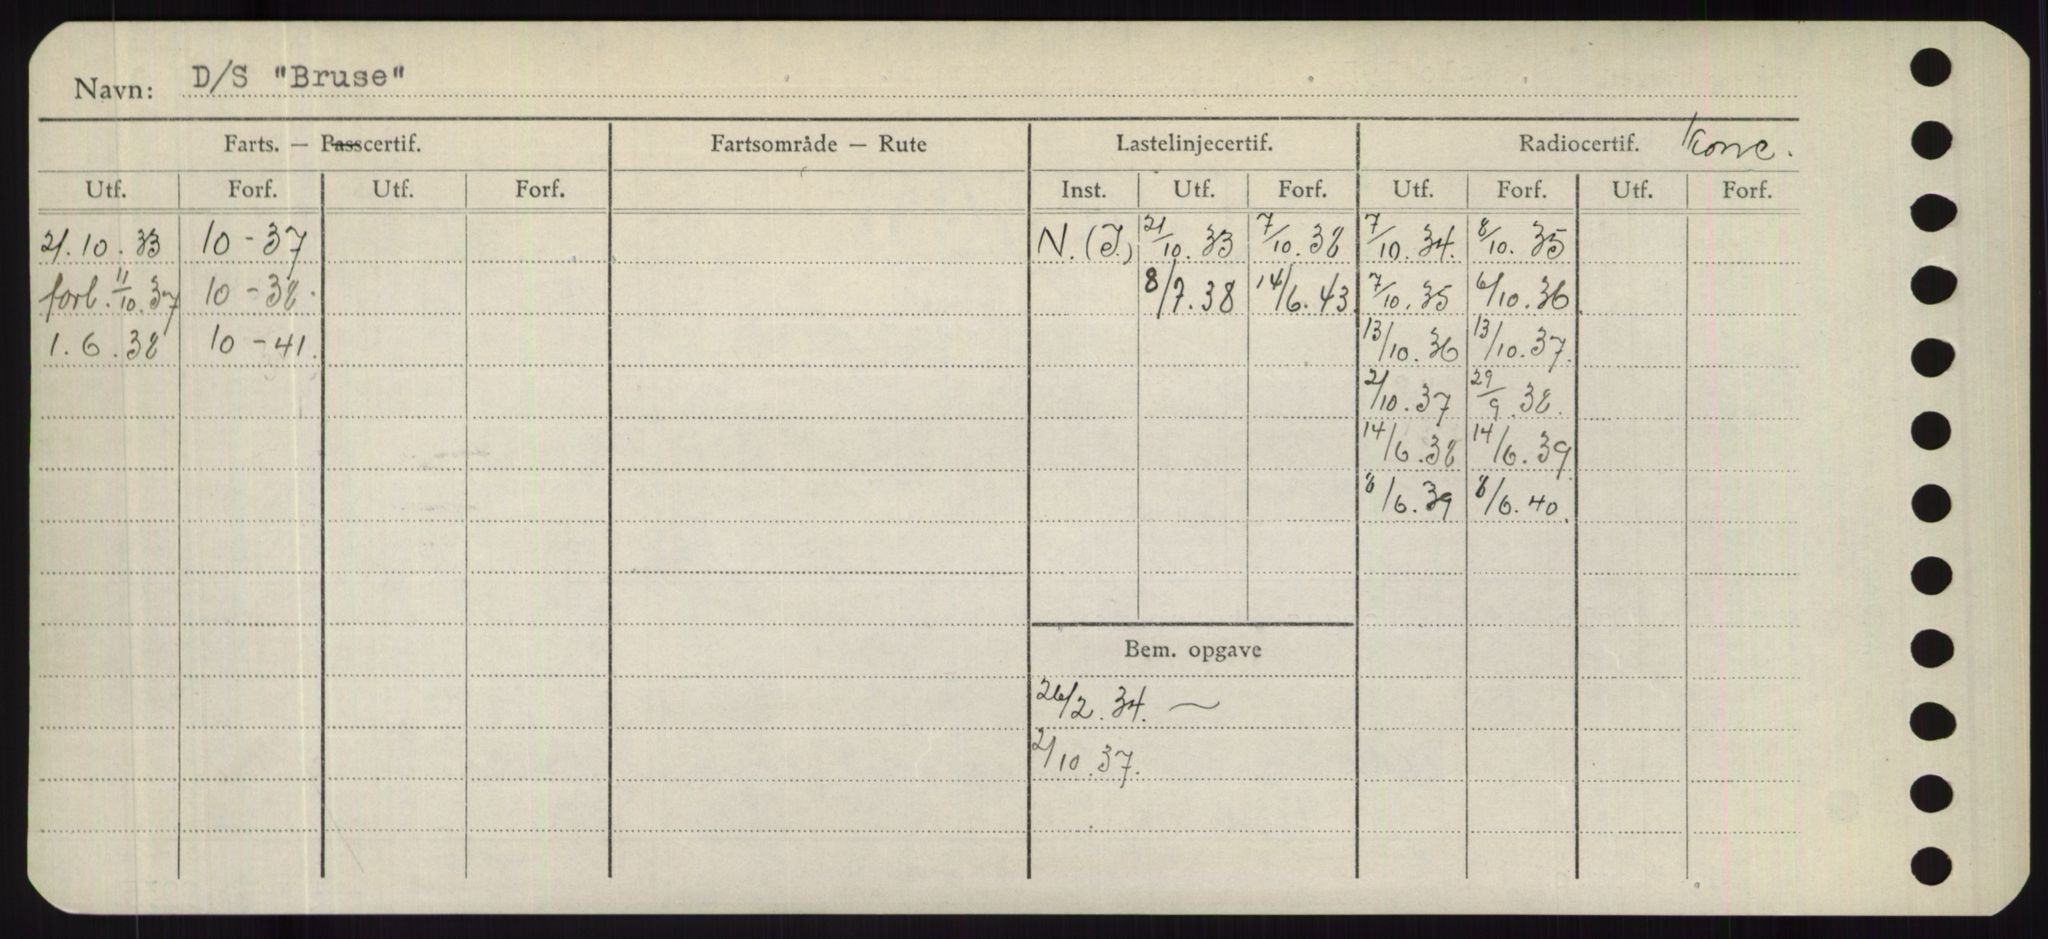 Navn: D/S "Bruse"
Farts. — Passcertif. Fartsområde — Rute Lastelinjecertif. Radiocertif. konc.
Utf. Forf. Utf. Forf. Inst. Utf. Forf. Utf. Forf. Utf. Forf.
21.10.33 10-37 N.(I.) 21/10.33 7/10.38 7/10.34. 8/10.35
forl. 11/10.37 10-38. 8/7.38 14/6.43 7/10.35 6/10.36
1.6.38 10-41. 13/10.36 13/10.37.
2/10.37 29/9.38.
14/6.38 14/6.39
8/6.39 8/6.40.
Bem. opgave
26/2.34. ~
2/10.37.